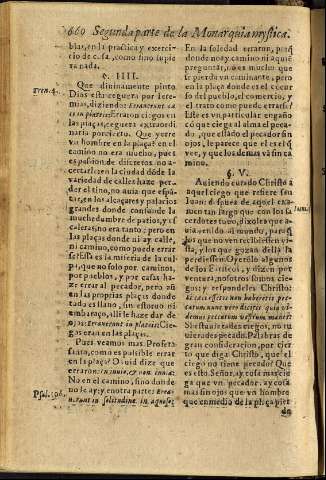 660 Segunda parte de la Monarquia mystica.
blar, en la practica y exerci-
cio de essa, como sino supiera
nada.
§. IIII.
Que divinamente pinto
Dios esta ceguera por Iere-
mias, diziendo: Errauerunt cæ-
ci in plateis: Erraron ciegos en
las plaças, ceguera extraordi-
naria por cierto. Que yerre
vn hombre en la plaça? en el
camino no era mucho, pues
es passion de discretos no a-
certarle: en la ciudad donde la
variedad de calles haze per-
der el tino, no auia que espã-
tar, en los alcaçares y palacios
grandes donde confunde la
muchedumbre de patios, y es
caleras, no era tanto; pero en
las plaças donde ni ay calle,
ni camino, como puede errar
se? Essa es la miseria de la cul-
pa, que no solo por caminos,
por pueblos, y por casas ha-
ze errar al pecador, pero aũ
en las propias plaças donde
todo es llano, sin estoruo ni
embaraço, alli le haze dar de
ojos: Errauerunt in plateis: Cie-
gos eran en las plaças.
Pues veamos mas Profeta
santo, como es possible errar
en la plaça? O id que dize que
erraron: in inuio, & non in via:
No en el camino, sino donde
no le ay; y en otra parte: Erra-
uerunt in solitudine in aquoso:
En la soledad erraron, porq̃
donde no ay camino ni a quiẽ
preguntar, no es mucho que
se pierda vn caminante, pero
en la plaça donde es el concur
so del pueblo, el comercio, y
el trato como es possible errar?
Este es vn particular engaño
que ciega al alma el peca-
do, que estando el pecador sin
ojos, le parece que el es el q̃
ve, y que los demas vã sin ca
mino.
§. V.
Auiendo curado Christo â
aquel ciego que refiere san
Iuan: despues de aquel exa-
men tan largo que con los sa-
cerdotes tuuo, dixo: yo vine a-
qui viniendo al mundo, para q̃
los que no ven recibiessen vi-
sta, y los que gozan della la
perdiessen. Oyerõlo algunos
de los Fariseos, y dizen por
ventura, nosotros somos cie-
gos? y respondeles Christo:
Si cæci essetis non haberetis pec-
catum, nunc vero dicitis quia vi-
demus peccatum vestrum manet:
Si estuuierades ciegos, no tu-
uierades pecado. Palabras de
gran consideracion, por cier
to que diga Christo, que el
ciego no tiene pecado? Que
es esto Señor, ay cosa mas cie
ga que vn pecador? ay co-
sa mas sin ojos que vn hombre
que en medio de la plaça pier
de
Iren. 4.
Psal. 106.
Ioan. 9.